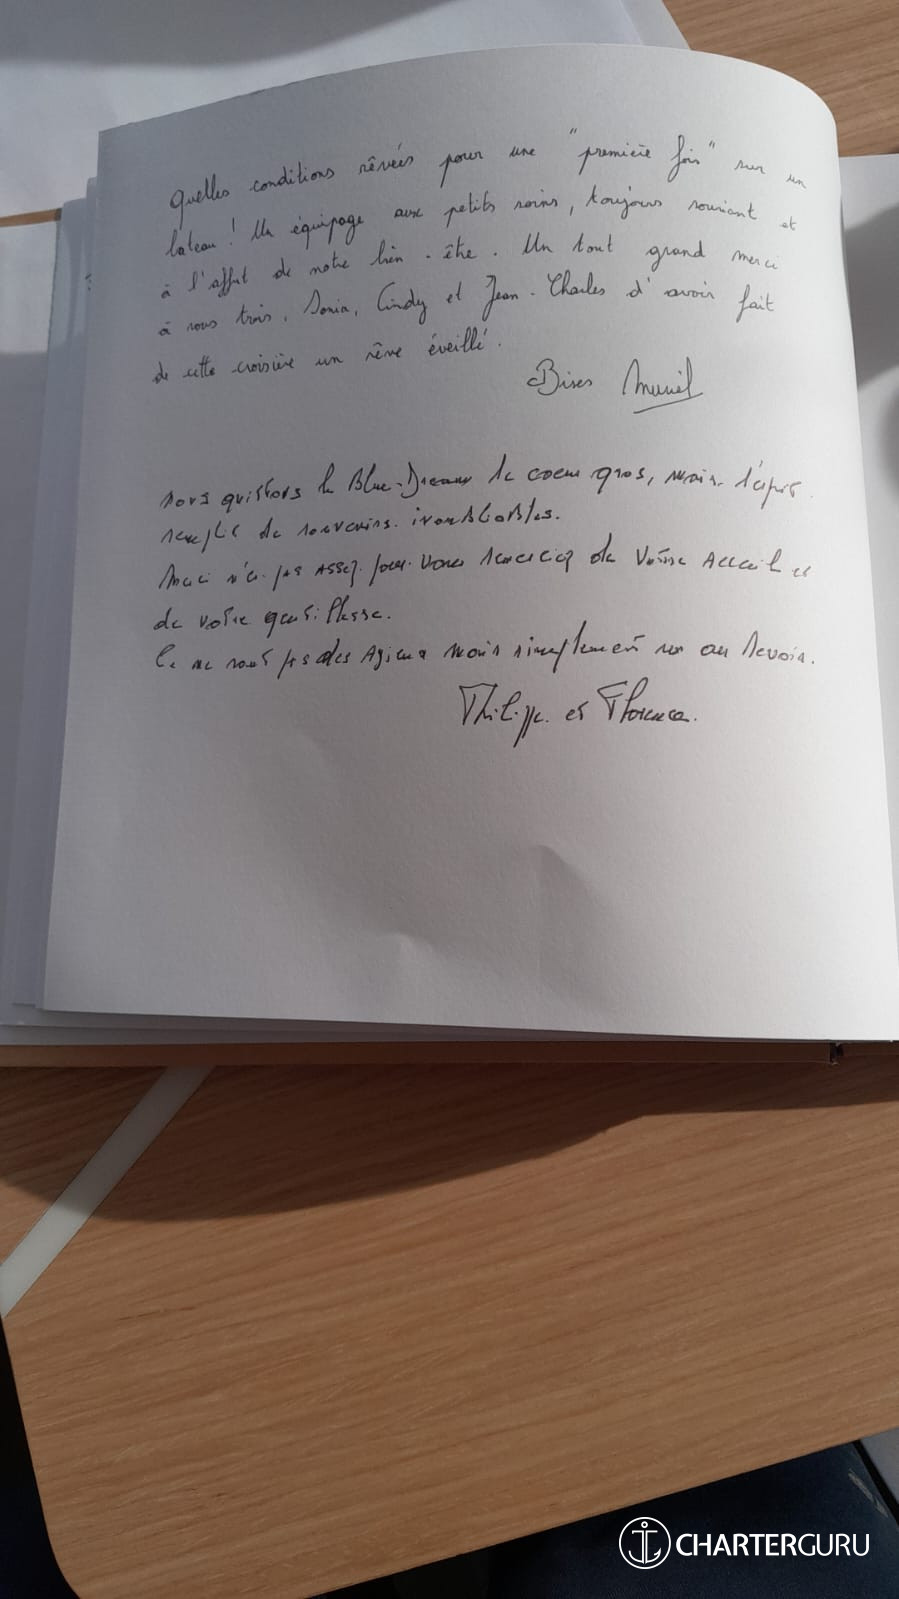 Quelles conditions rêvées pour une "première fois" sur un
bateau ! Un équipage aux petits soins, toujours souriant et
à l'affut de notre bien-être. Un tout grand merci
à vous trois, Sonia, Cindy et Jean-Charles d'avoir fait
de cette croisière un rêve éveillé.
Bises Muriel
Nous quittons le Blue-Dream le coeur gros, mais l'esprit
remplit de souvenirs inoubliables.
Merci n'a pas assez pour vous remercier de votre accueil et
de votre gentillesse.
Ce ne sont pas des adieux mais simplement un au revoir.
Philippe et Florence.
CHARTERGURU